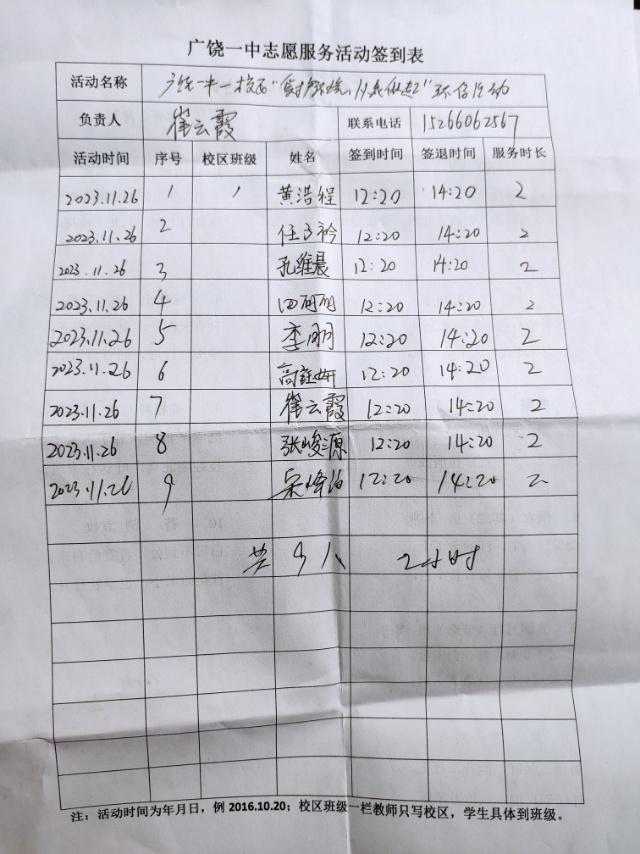 广饶一中志愿服务活动签到表
活动名称 广饶一中一校区 环保活动
负责人 崔云霞 联系电话 15266062567
活动时间 序号 校区班级 姓名 签到时间 签退时间 服务时长
2023.11.26 1 黄浩程 12:20 14:20 2
2023.11.26 2 任子衿 12:20 14:20 2
2023.11.26 3 孔维晨 12:20 14:20 2
2023.11.26 4 12:20 14:20 2
2023.11.26 5 李明 12:20 14:20 2
2023.11.26 6 高钰妍 12:20 14:20 2
2023.11.26 7 崔云霞 12:20 14:20 2
2023.11.26 8 张峻源 12:20 14:20 2
2023.11.26 9 12:20 14:20 2
共9人 2小时
注：活动时间为年月日，例 2016.10.20；校区班级一栏教师只写校区，学生具体到班级。